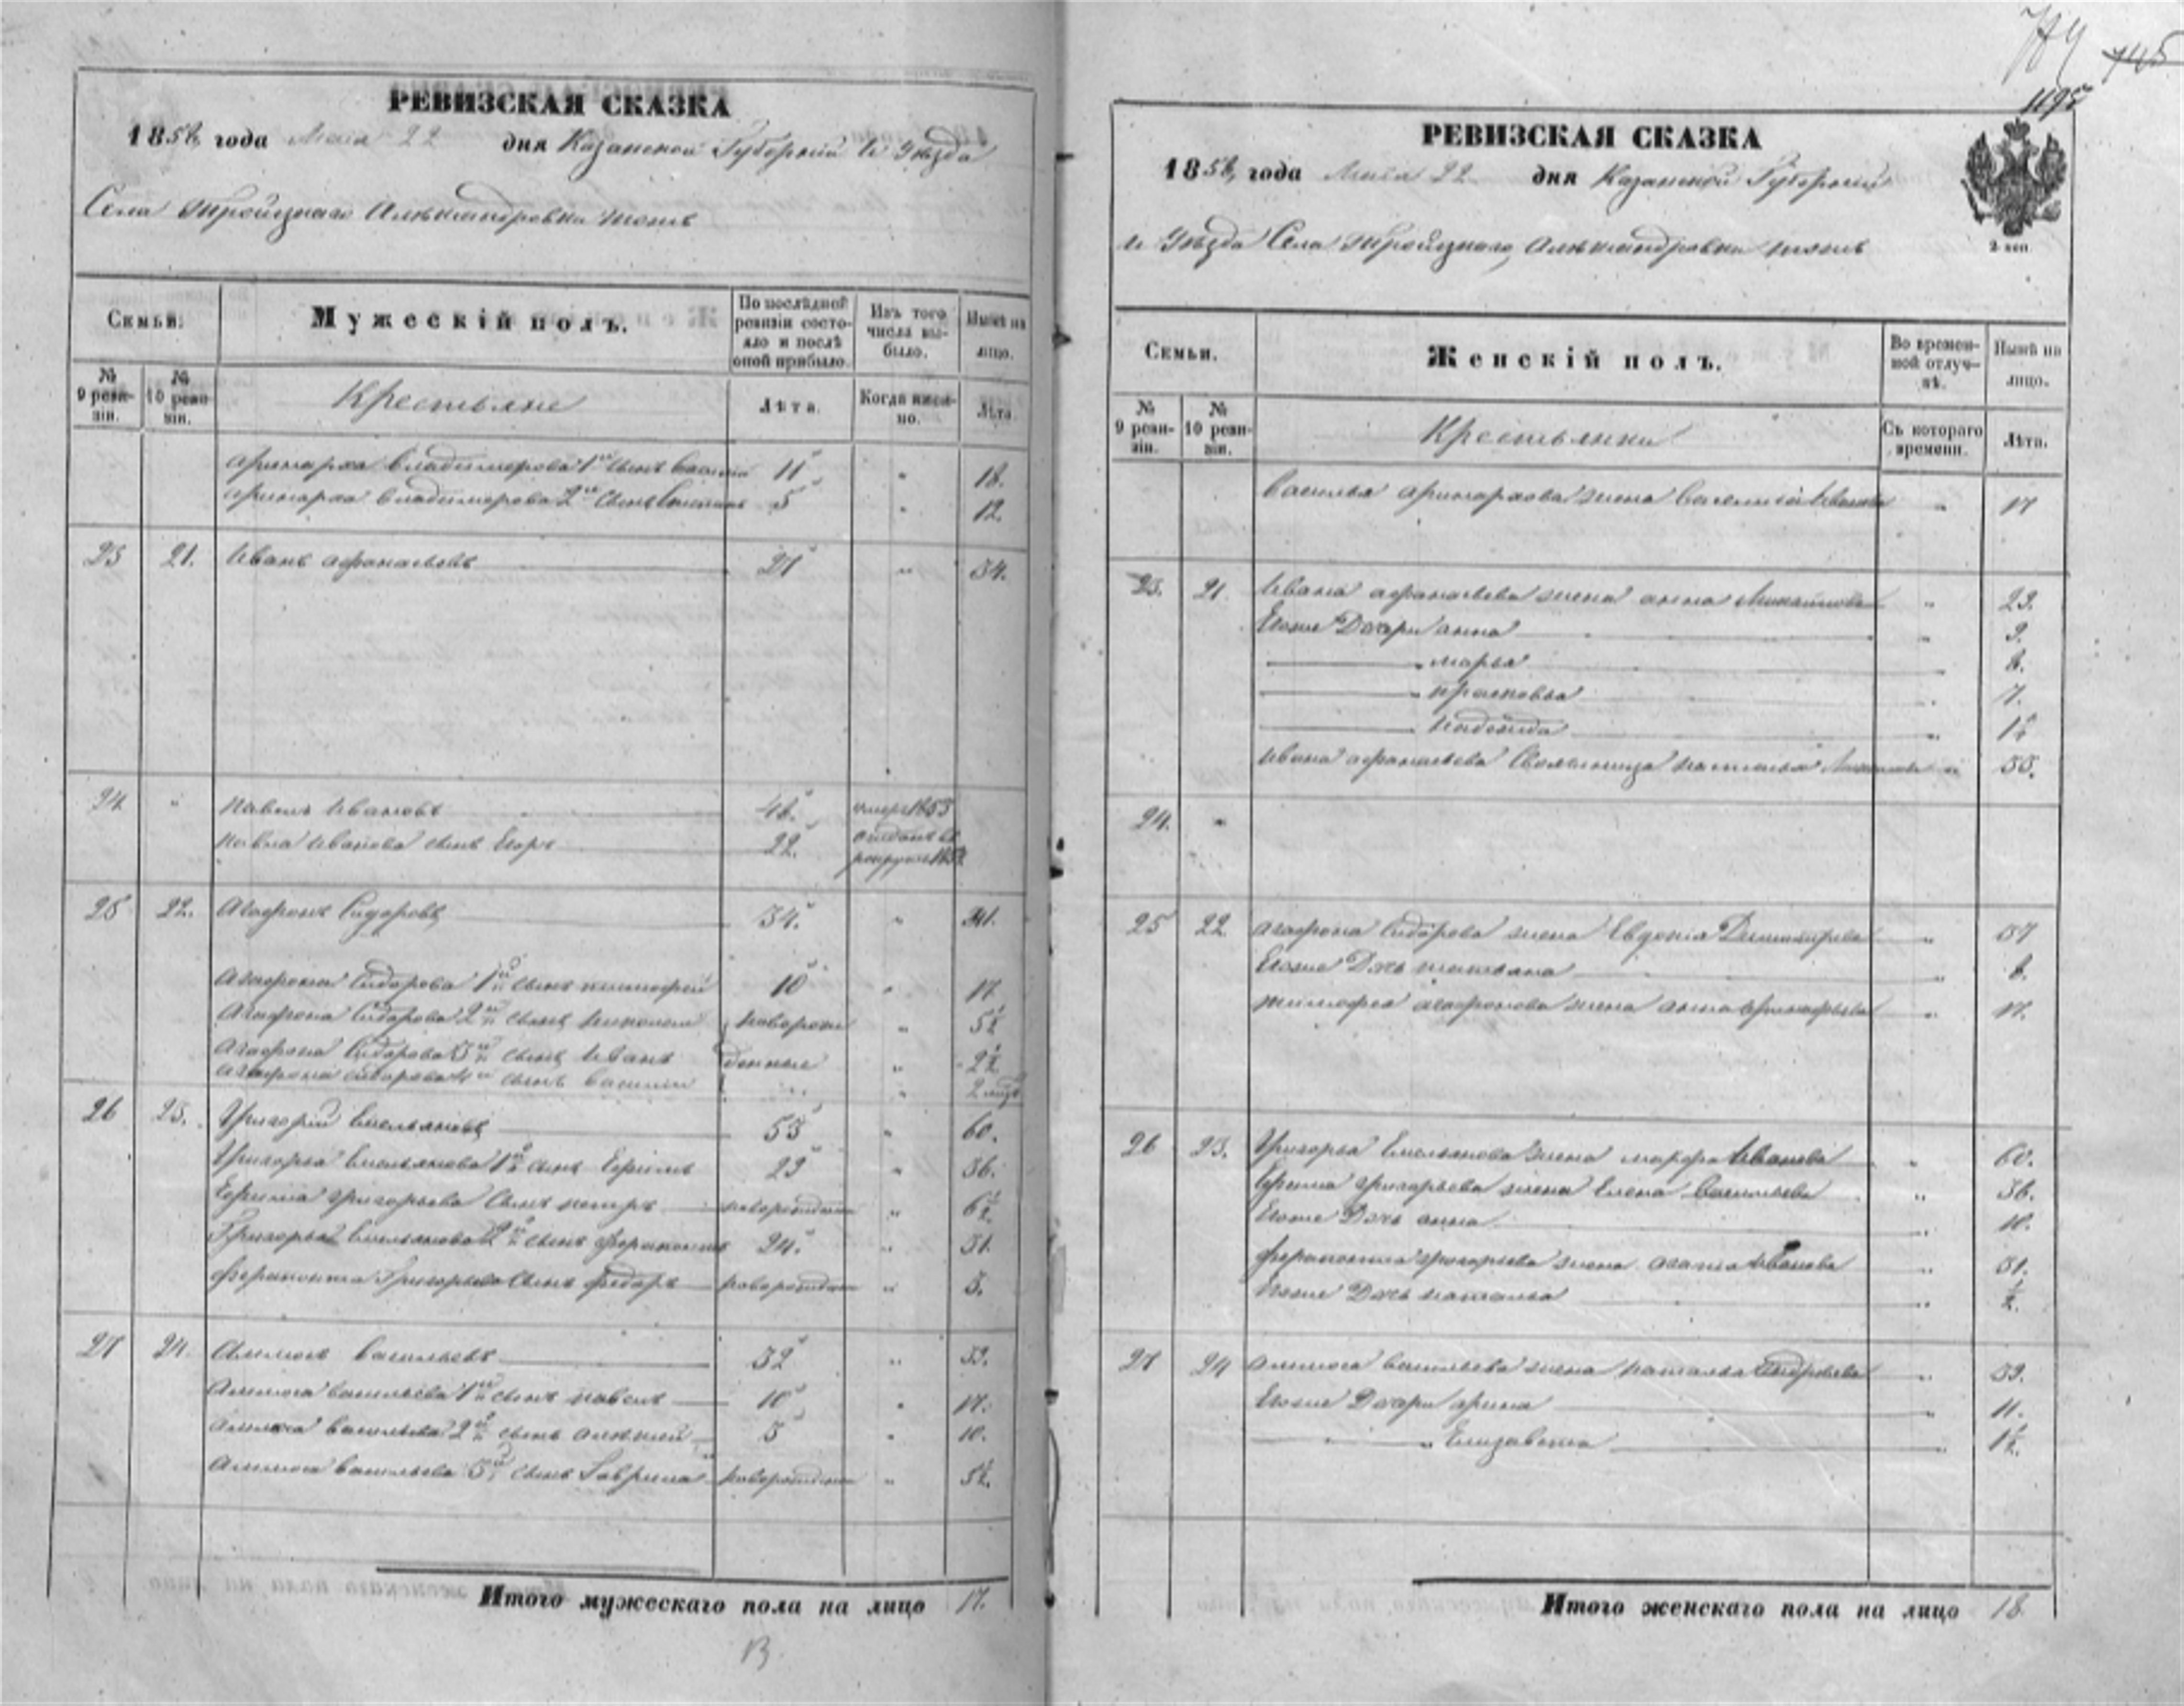 РЕВИЗСКАЯ СКАЗКА
1858 года Мая 22 дня Казанской Губерніи и Уѣзда
Села Троицкаго Александровка тожъ
Семьи.
Мужескій полъ.
По послѣдней ревизіи состояло и послѣ оной прибыло.
Изъ того числа выбыло.
Нынѣ на лицо.
№ 9 ревизіи.
№ 10 ревизіи.
Крестьяне
Лѣта.
Когда именно.
Лѣта.
Аринарха Владимерова 1й сынъ Василій 11 " 18.
Аринарха Владимерова 2й сынъ 5 " 12.
23 21. Иванъ Афанасьевъ 27 " 34.
24 " Павелъ Ивановъ 46. умеръ 1853
Павла Иванова сынъ Егоръ 22. отданъ въ рекруты
25 22. Агафонъ Сидоровъ 34. " 41.
Агафона Сидорова 1й сынъ тимофей 10 " 17
Агафона Сидорова 2й сынъ Николай новорож " 5½
Агафона Сидорова 3й сынъ Иванъ денные " 2½
Агафона Сидорова 4й сынъ Василій " 2
26 23. Григорій Емельяновъ 53 " 60.
Григорья Емельянова 1й сынъ Ефимъ 29 " 36.
Ефима Григорьева сынъ петръ новорожденъ " 6½
Григорья Емельянова 2й сынъ Ферапонтъ 24. " 31
Ферапонта Григорьева сынъ Федоръ новорожденъ " 3.
27 24 Васильевъ 32 " 39.
Васильева 1й сынъ павелъ 10 " 17.
Васильева 2й сынъ Алексѣй 3 " 10.
Васильева 3й сынъ Гаврила новорожденъ " 5½
Итого мужескаго пола на лицо 17.
13
744 745
1195
РЕВИЗСКАЯ СКАЗКА
1858 года Мая 22 дня Казанской Губерніи
и Уѣзда Села Троицкаго, Александровка тожъ
2 коп.
Семьи.
Женскій полъ.
Во временной отлучкѣ.
Нынѣ на лицо.
№ 9 ревизіи.
№ 10 ревизіи.
Крестьянки
Съ котораго времени.
Лѣта.
Василья Аринархова жена Иванова " 17
23. 21 Ивана Афанасьева жена Анна " 29.
Егоже Дочери Анна " 9.
" марья " 8.
" прасковья " 7.
" Надежда " 1½
Ивана Афанасьева Свояченица наталья " 33.
24. "
25 22 Агафона Сидорова жена Евдокія Димитріева " 37
Егоже Дочь татьяна " 8.
тимофея Агафонова жена Анна " 17.
26 23. Григорья Емельянова жена марфа Иванова " 60.
Ефима Григорьева жена Елена Васильева " 36.
Егоже Дочь Анна " 10.
Ферапонта Григорьева жена Агата Иванова " 31.
Егоже Дочь наталья " ½.
27 24 Васильева жена наталья Андреева " 39.
Егоже Дочери Арина " 11.
" Елизавета " 1½.
Итого женскаго пола на лицо 18